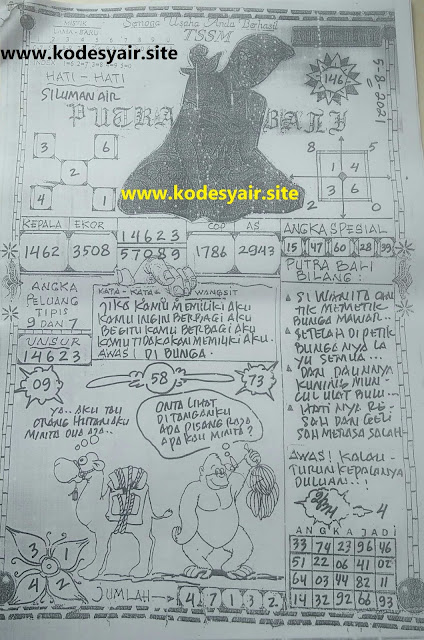 MISTIK
LAMA - BARU
Semoga Usaha Anda Berhasil
TSSM
www.kodesyair.site
HATI - HATI
SILUMAN AIR
146
5-8-2021
PUTRA BALI
3 6
2
4 1
5 8
1 4
3 6
2 0
www.kodesyair.site
KEPALA EKOR
1462 3508
14623
57089
COP AS
1786 2943
ANGKA SPESIAL
15 47 60 28 39
ANGKA
PELUANG
TIPIS
9 DAN 7
UNSUR
14623
KATA - KATA WANGSIT
JIKA KAMU MEMILIKI AKU
KAMU INGIN BERBAGI AKU
BEGITU KAMU BERBAGI AKU
KAMU TIDAK AKAN MEMILIKI AKU.
AWAS! DI BUNGA.
PUTRA BALI
BILANG:
SI WANITA CAN
TIK MEMETIK
BUNGA MAWAR...
SETELAH DI PETIK
BUNGANYA LA
YU SEMUA...
DAN DAUNNYA
KUNING MUN-
CUL ULAT BULU...
HATINYA RE-
SAH DAN GELI
SAH MERASA SALAH-
09 58 73
YA.. AKU TAU
ORANG HUTAN AKU
MINTA DUA AJA..
ONTA LIHAT
DI TANGANKU
ADA PISANG RAJA
APA KAU MINTA?
AWAS! KALAU-
TURUN KEPALANYA
DULUAN...!
4
ANGKA JADI
33 74 23 96 46
51 22 06 41 02
64 03 44 82 11
14 32 92 66 93
3 1
4 2
JUMLAH → 4 7 1 3 2